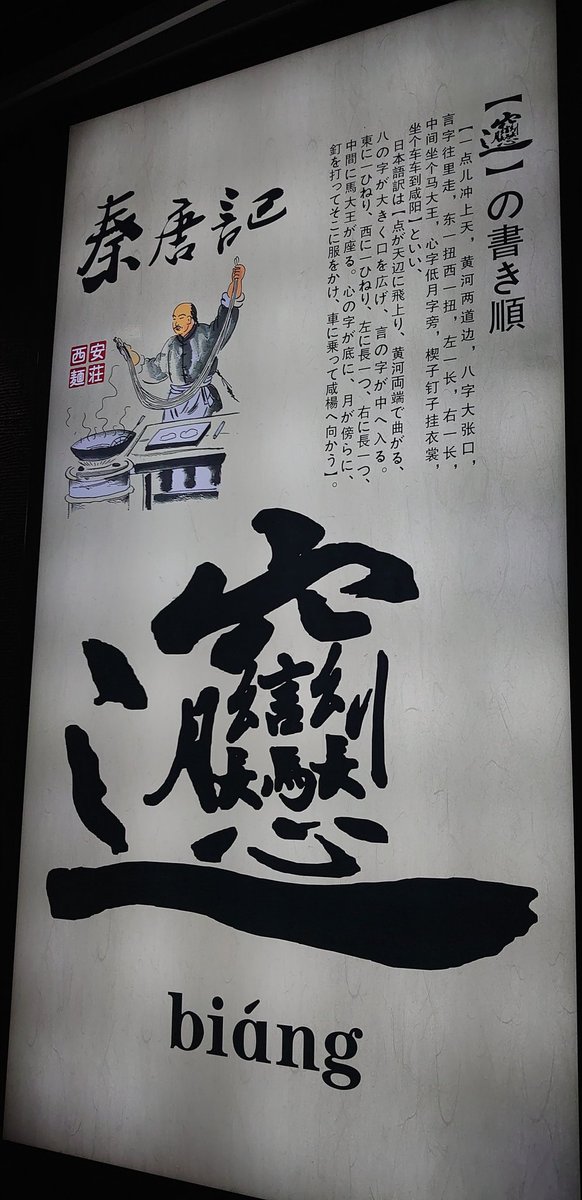 【𰻞】の書き順
【一点儿冲上天，黄河两道边，八字大张口，
言字往里走，东一扭西一扭，左一长，右一长，
中间坐个马大王，心字低月字旁，楔子钉子挂衣裳，
坐个车车到咸阳】といい、
日本語訳は【点が天辺に飛上り、黄河両端で曲がる、
八の字が大きく口を広げ、言の字が中へ入る。
東に一ひねり、西に一ひねり、左に長一つ、右に長一つ、
中間に馬大王が座る。心の字が底に、月が傍らに、
釘を打ってそこに服をかけ、車に乗って咸楊へ向かう】。
秦唐記
西安
麺荘
𰻞
biáng